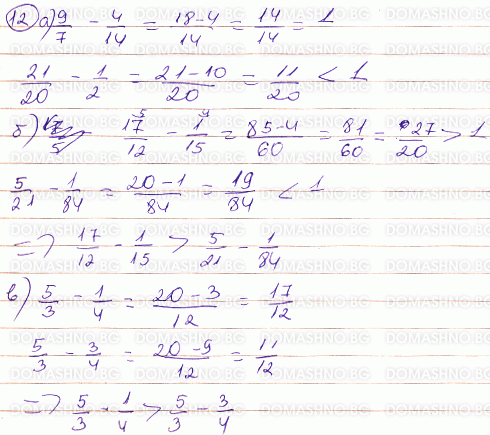 12 а) 9/7 - 4/14 = 18-4/14 = 14/14 = 1
21/20 - 1/2 = 21-10/20 = 11/20 < 1
б) 17/12 - 1/15 = 85-4/60 = 81/60 = 27/20 > 1
5/21 - 1/84 = 20-1/84 = 19/84 < 1
=> 17/12 - 1/15 > 5/21 - 1/84
в) 5/3 - 1/4 = 20-3/12 = 17/12
5/3 - 3/4 = 20-9/12 = 11/12
=> 5/3 - 1/4 > 5/3 - 3/4
DOMASHNO.BG